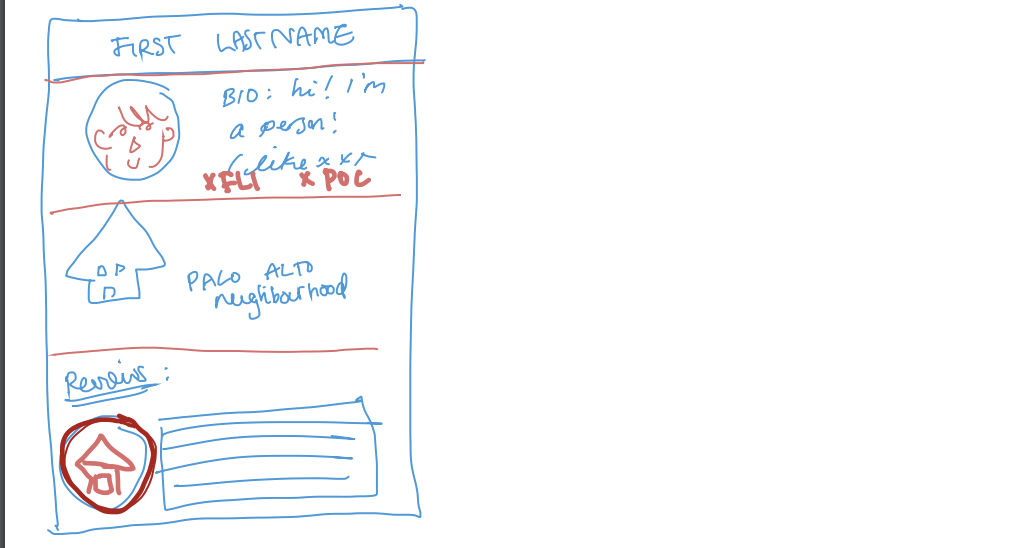 FIRST LASTNAME
BIO: hi! I'm
a person!
like x x
x FLI x POC
PALO ALTO
neighbourhood
Reviews: